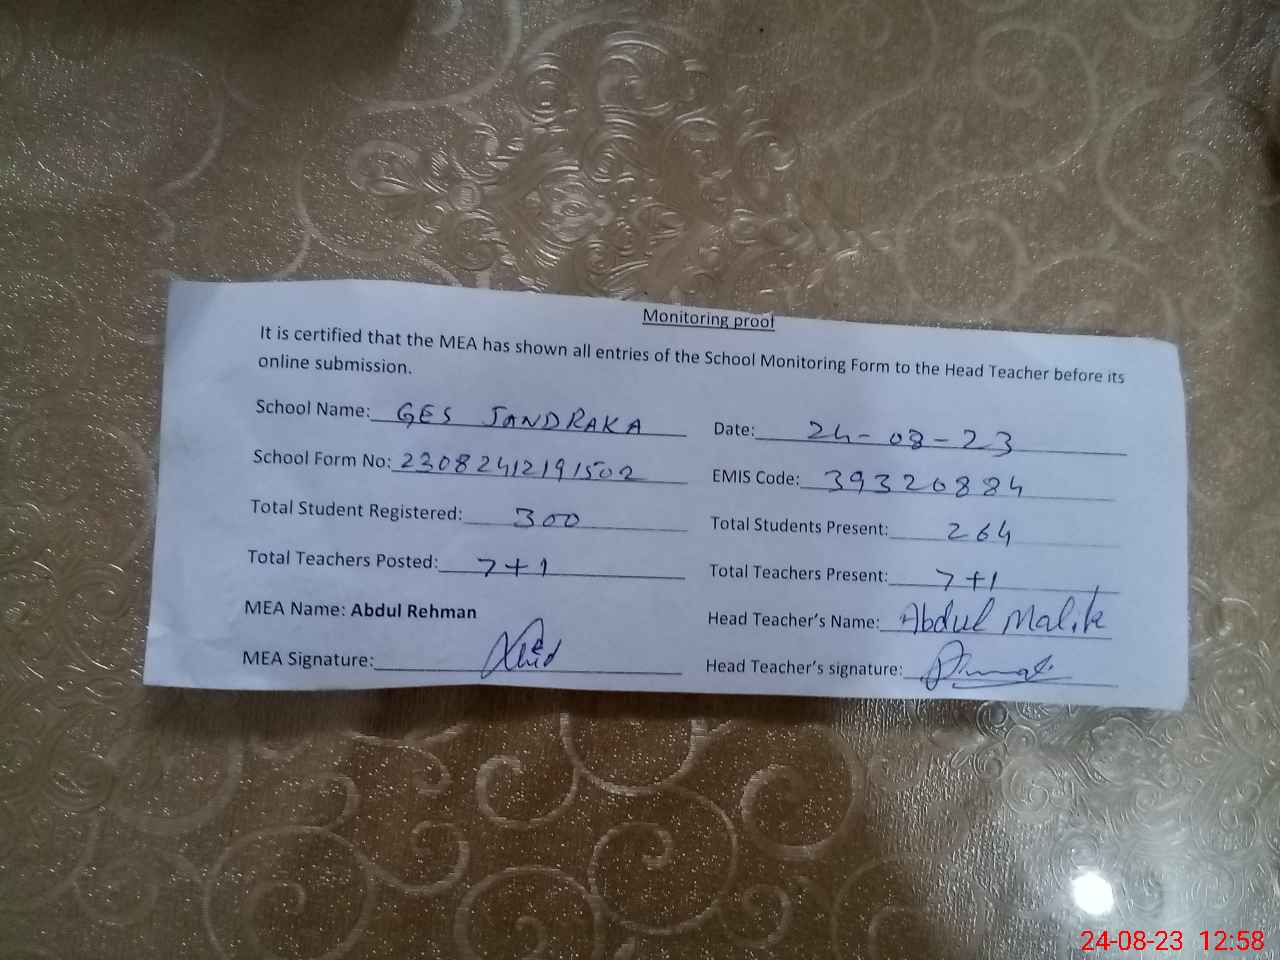 Monitoring proof
It is certified that the MEA has shown all entries of the School Monitoring Form to the Head Teacher before its
online submission.
School Name: GES JANDRAKA Date: 24-08-23
School Form No: 23082412191502 EMIS Code: 39320884
Total Student Registered: 300 Total Students Present: 264
Total Teachers Posted: 7+1 Total Teachers Present: 7+1
MEA Name: Abdul Rehman Head Teacher's Name: Abdul Malik
MEA Signature: Head Teacher's signature:
24-08-23 12:58